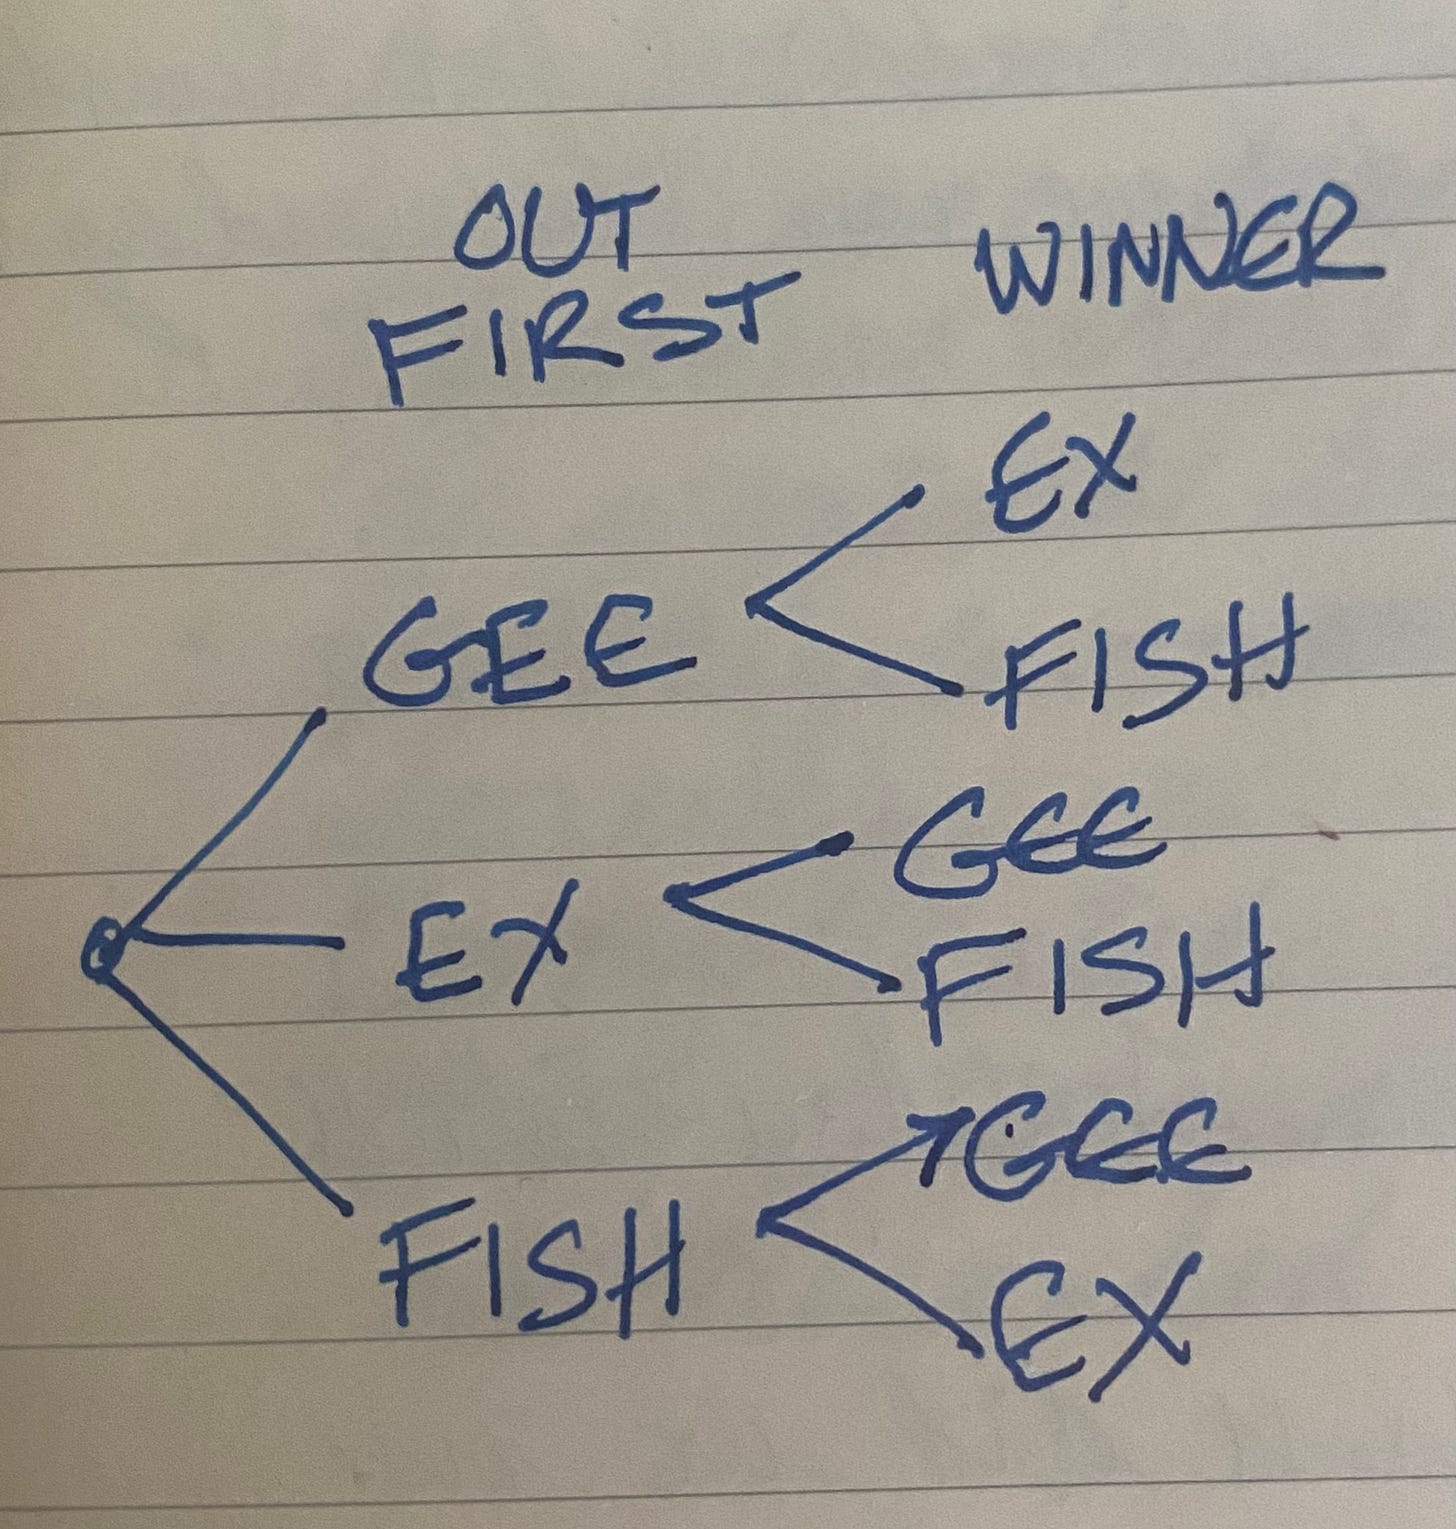 OUT
FIRST
WINNER
GEE
EX
FISH
EX
GEE
FISH
FISH
GEE
EX